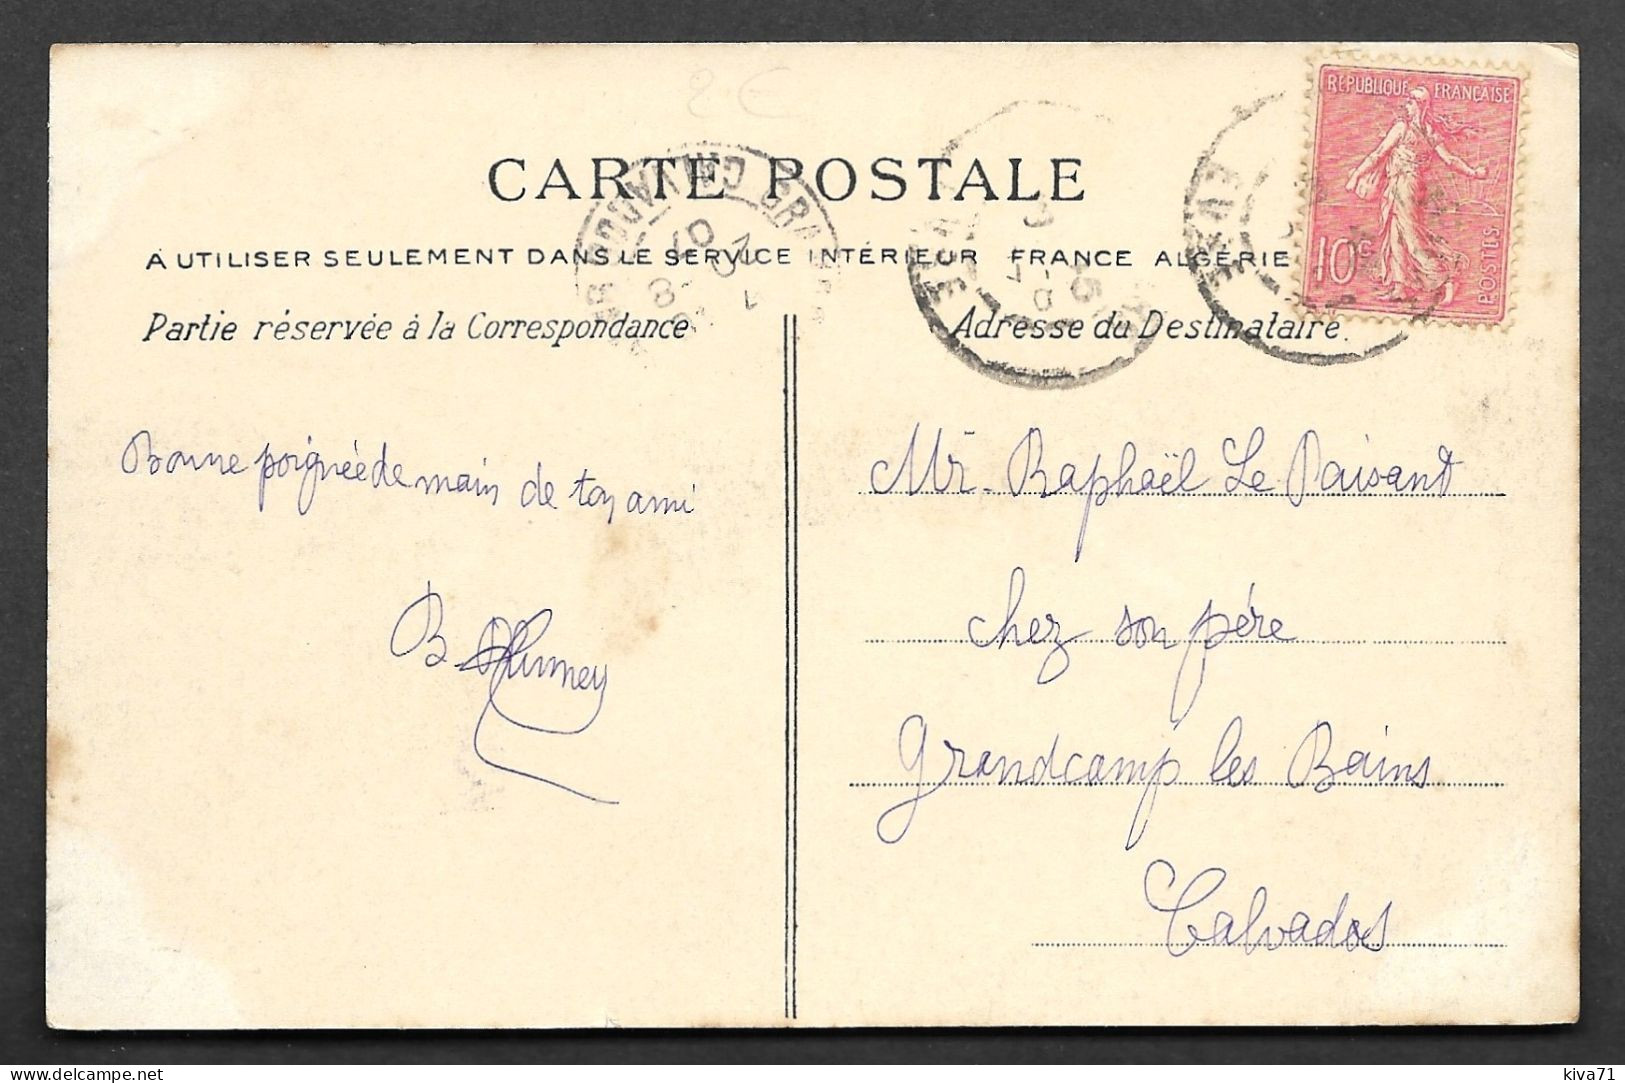 2€
RÉPUBLIQUE FRANÇAISE
10c
POSTES
CARTE POSTALE
A UTILISER SEULEMENT DANS LE SERVICE INTÉRIEUR FRANCE ALGÉRIE
Partie réservée à la Correspondance
Adresse du Destinataire.
Bonne poignée de main de ton ami
B.
Mr. Raphaël Le Paisant
chez son père
Grandcamp les Bains
Calvados
kiva71